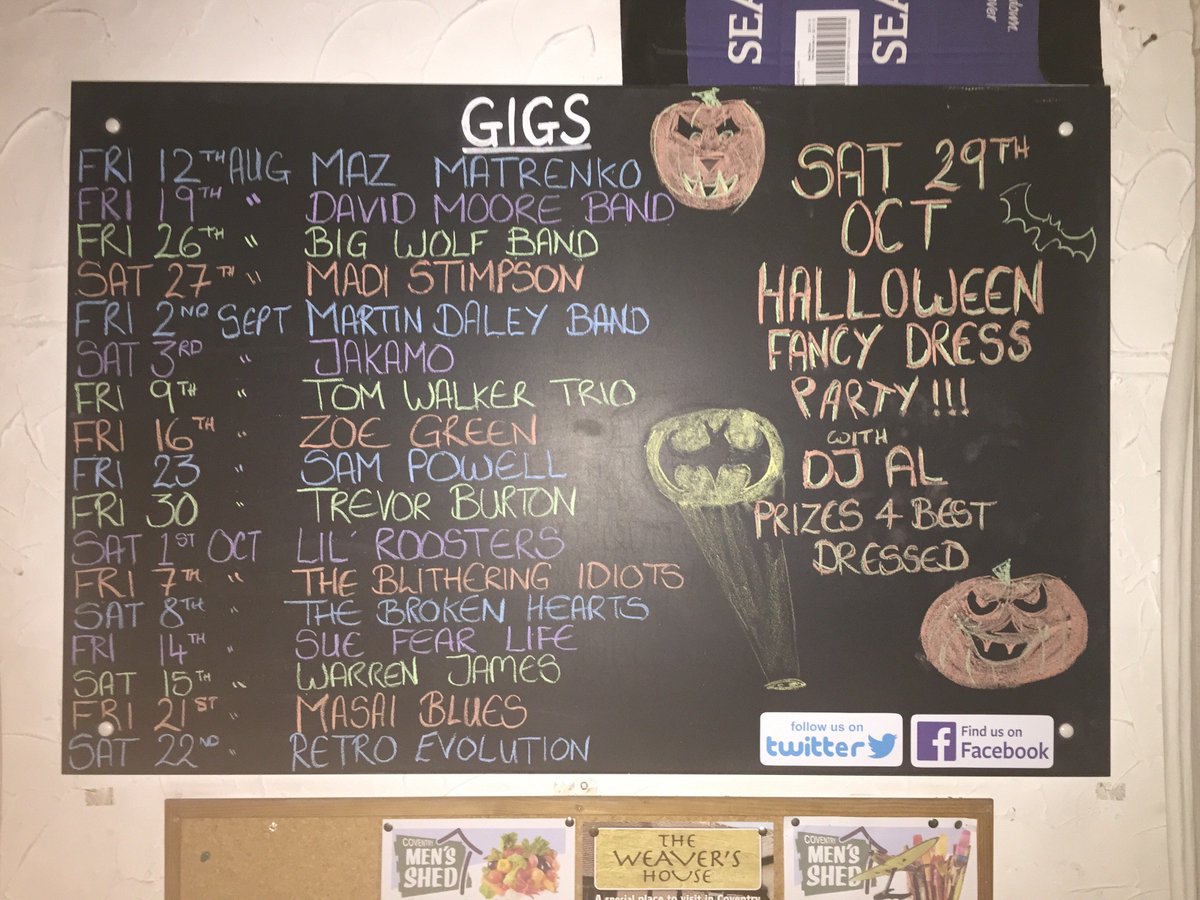 SEA
SEA
down.
over
GIGS
FRI 12TH AUG MAZ MATRENKO
FRI 19TH " DAVID MOORE BAND
FRI 26TH " BIG WOLF BAND
SAT 27TH " MADI STIMPSON
FRI 2ND SEPT MARTIN DALEY BAND
SAT 3RD " JAKAMO
FRI 9TH " TOM WALKER TRIO
FRI 16TH " ZOE GREEN
FRI 23 " SAM POWELL
FRI 30 " TREVOR BURTON
SAT 1ST OCT LIL' ROOSTERS
FRI 7TH " THE BLITHERING IDIOTS
SAT 8TH " THE BROKEN HEARTS
FRI 14TH " SUE FEAR LIFE
SAT 15TH " WARREN JAMES
FRI 21ST " MASAI BLUES
SAT 22ND " RETRO EVOLUTION
SAT 29TH
OCT
HALLOWEEN
FANCY DRESS
PARTY!!!
WITH
DJ AL
PRIZES 4 BEST
DRESSED
follow us on
twitter
Find us on
Facebook
COVENTRY
MEN'S
SHED
THE
WEAVER'S
HOUSE
A special place to visit in Coventry
COVENTRY
MEN'S
SHED